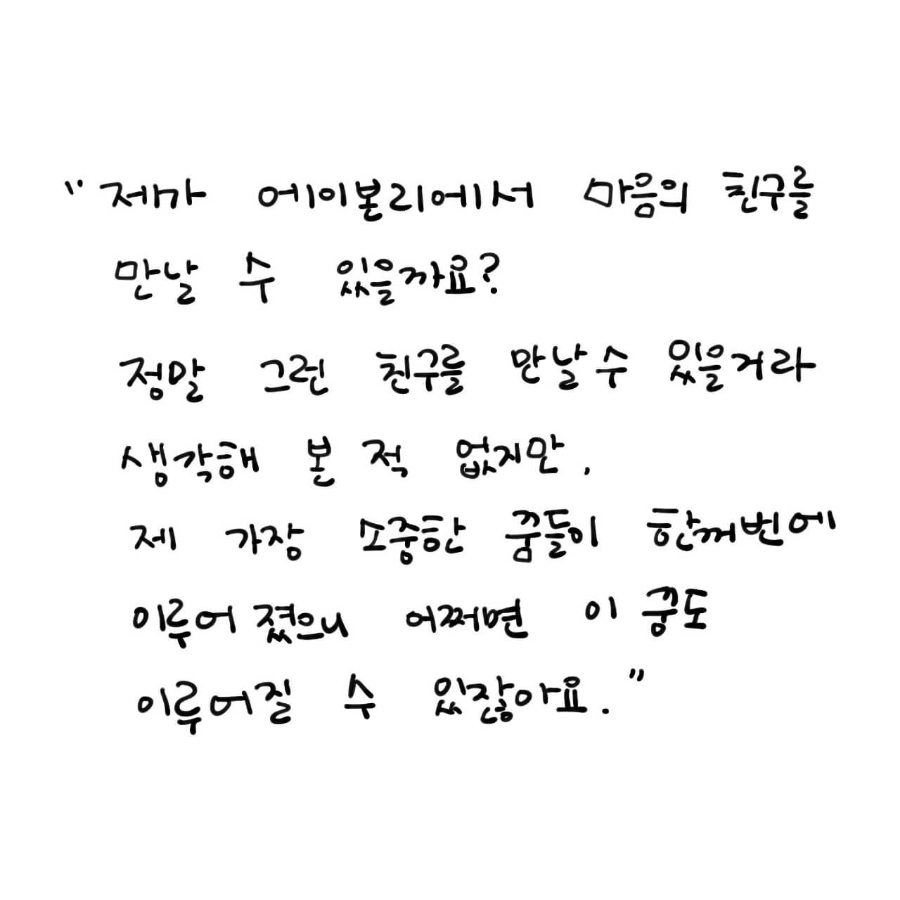 "제가 에이본리에서 마음의 친구를
만날 수 있을까요?
정말 그런 친구를 만날 수 있을거라
생각해 본 적 없지만,
제 가장 소중한 꿈들이 한꺼번에
이루어 졌으니 어쩌면 이 꿈도
이루어질 수 있잖아요."